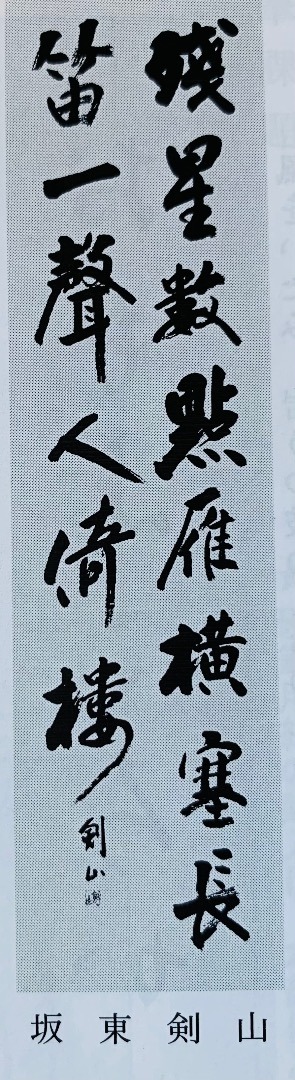 殘星數點雁橫塞長
笛一聲人倚樓
剣山
坂東剣山